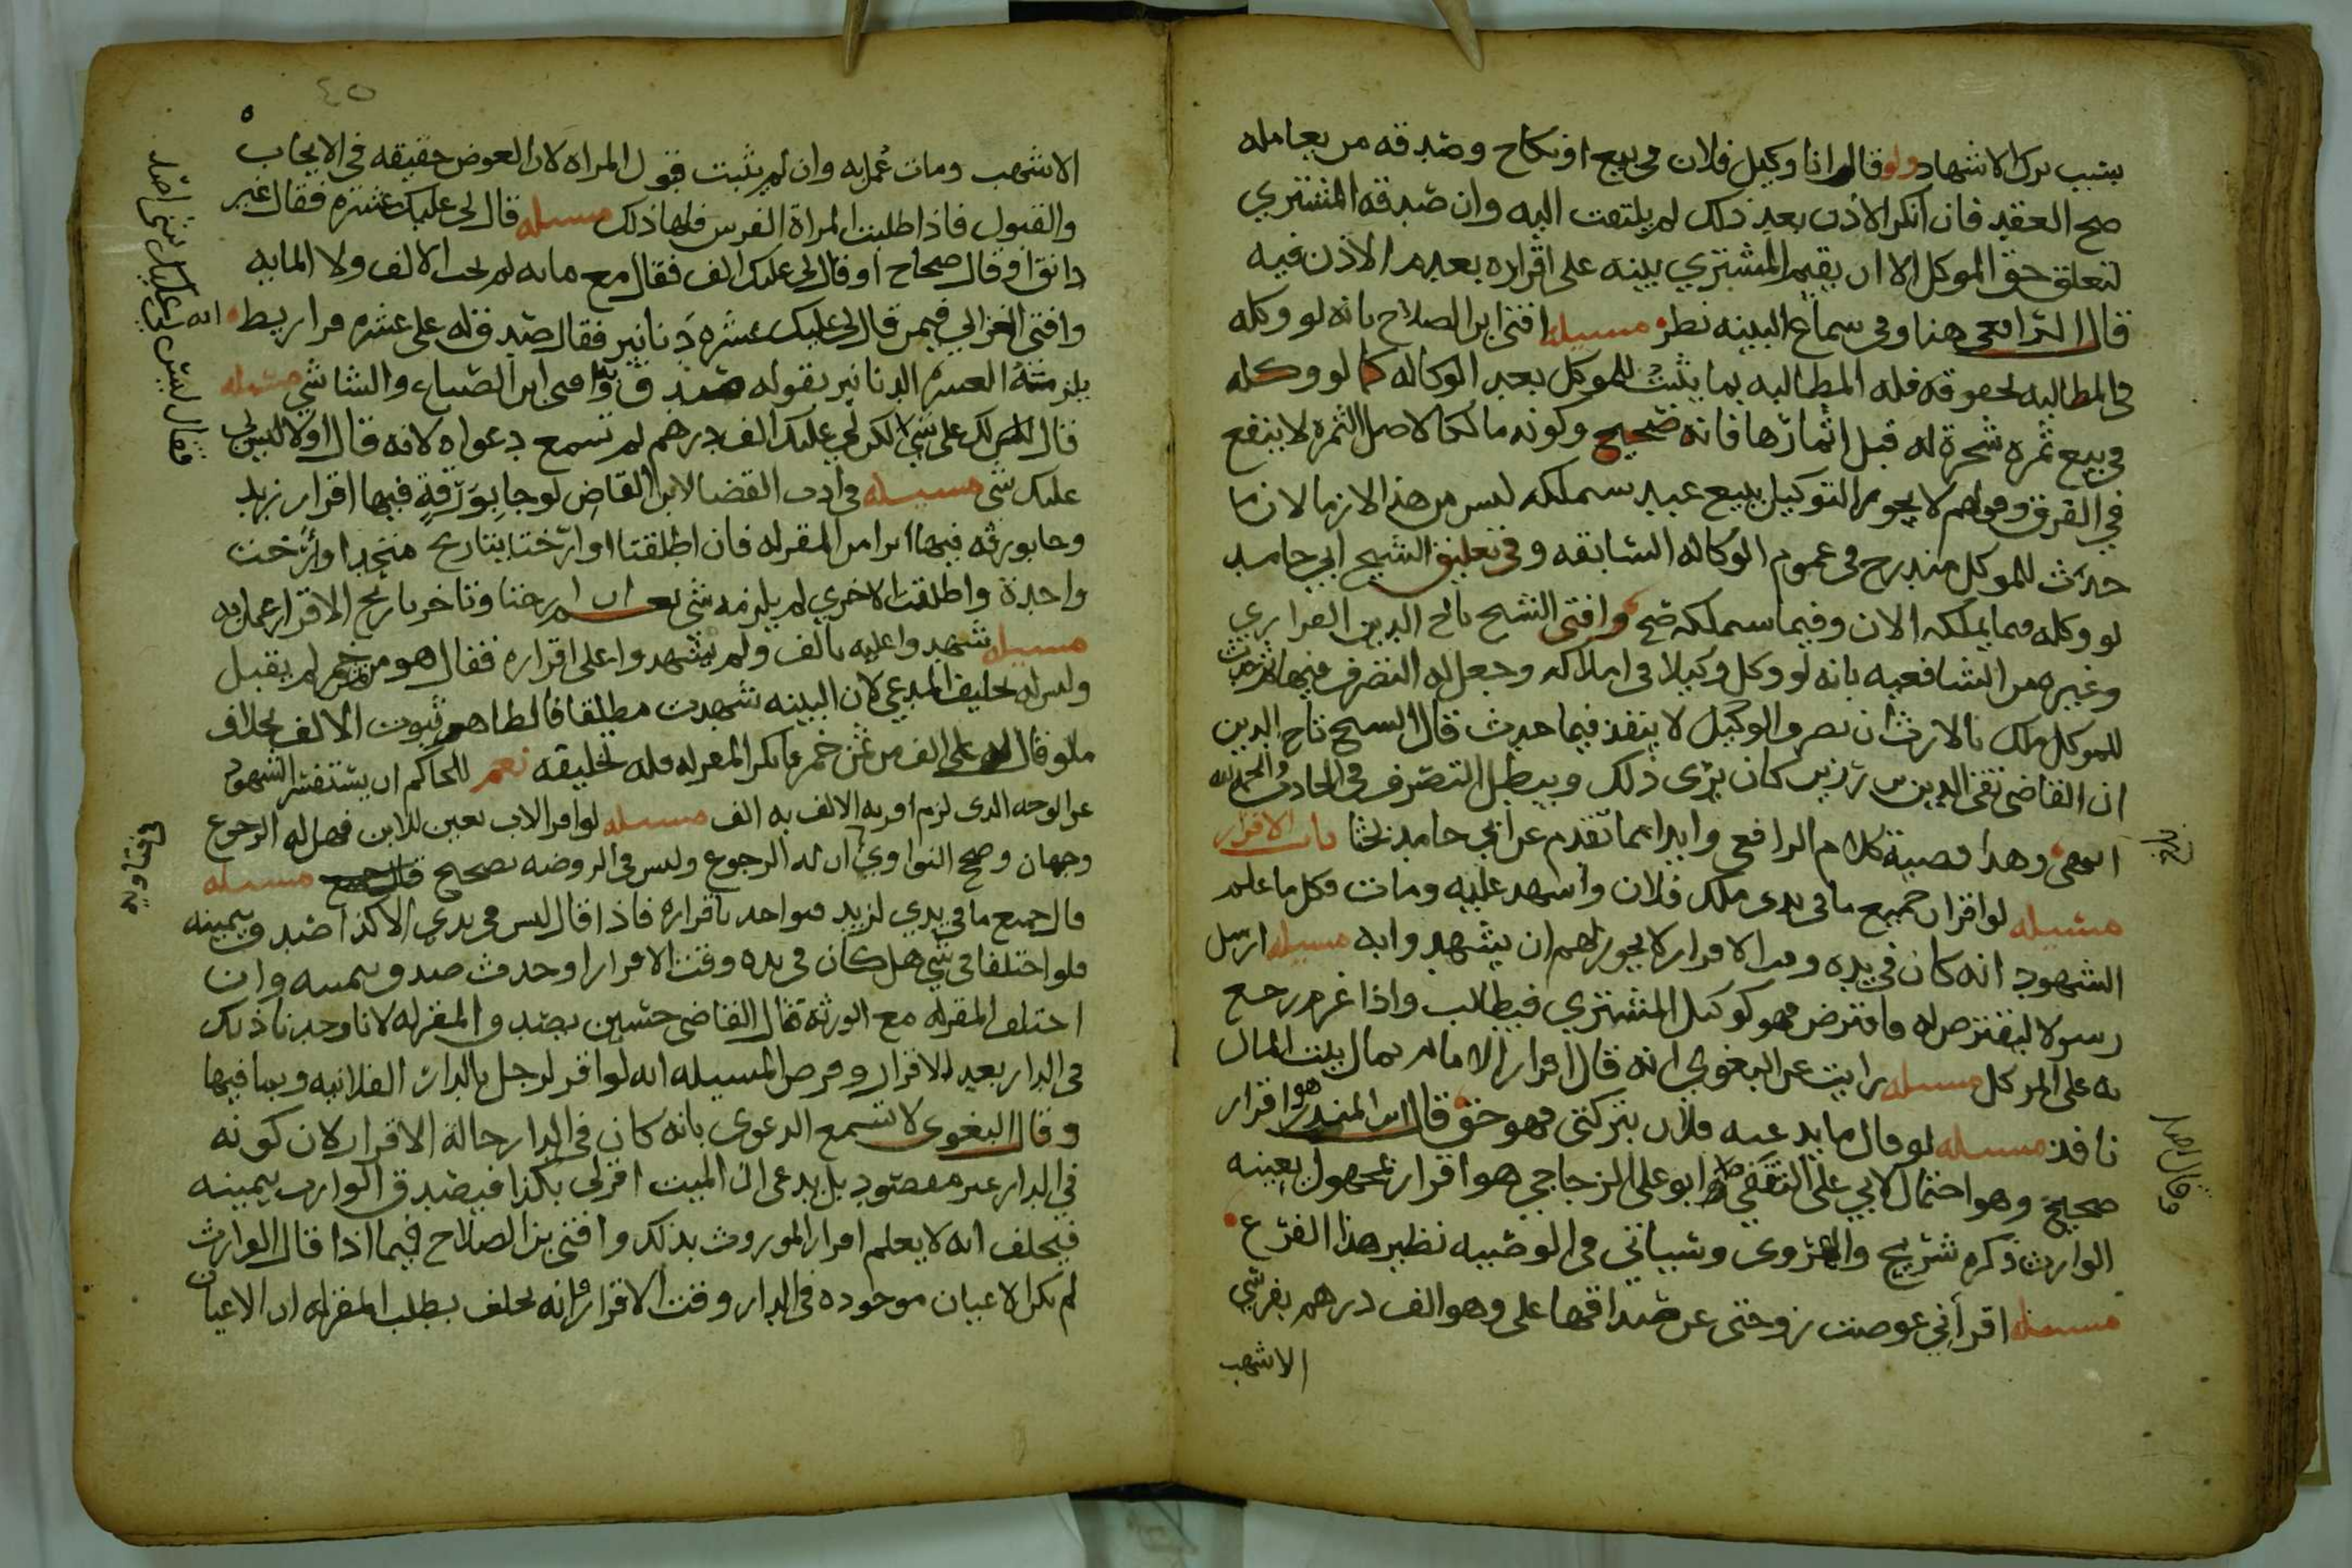 بسبب ترك الاشهاد ولو قال انا وكيل فلان في بيع او نكاح وصدقه من يعامله
صح العقد فان انكر الاذن بعد ذلك لم يلتفت اليه وان صدقه المشتري
لتعلق حق الموكل الا ان يقيم المشتري بينه على اقراره بعدم الاذن فيه
قال الرافعي هنا وفي سماع البينه نظر مسيله افتى ابن الصلاح بانه لو وكله
في المطالبه بحقوقه فله المطالبه بما يثبت للموكل بعد الوكاله كما لو وكله
في بيع ثمره شجرة له قبل اثمارها فانه صحيح وكونه مالكا لاصل الثمره لا ينفع
في الفرق وقولهم لا يجوز التوكيل ببيع عبد سيملكه ليس من هذا لان ما
حدث للموكل مندرج في عموم الوكاله السابقه وفي تعليق الشيخ ابي حامد
لو وكله فيما يملكه الان وفيما سيملكه صح وافتى الشيخ تاج الدين الفزاري
وغيره من الشافعيه بانه لو وكل وكيلا في املاكه وجعل له التصرف فيها ثم حدث
للموكل ملك بالارث ان تصرف الوكيل لا ينفذ فيما حدث قال الشيخ تاج الدين
ان القاضي تقي الدين بن رزين كان يرى ذلك ويبطل التصرف في الحادث والحمد لله
انتهى وهذا قضية كلام الرافعي وابداه ما تقدم عن ابي حامد بحثا باب الاقرار
مسيله لو اقر ان جميع ما في يدي ملك فلان واشهد عليه ومات فكل ما علم
الشهود انه كان في يده وقت الاقرار لا يجوز لهم ان يشهدوا به مسيله ارسل
رسولا ليقترض له فاقترض فهو كوكيل المشتري فيطالب واذا غرم رجع
به على الموكل مسيله رايت عن البغوي انه قال اقرار الامام بمال بيت المال
نافذ مسيله لو قال ما يدعيه فلان بتركتي فهو حق قال ابن المنذر هو اقرار
صحيح وهو احتمال لابي علي الثقفي ابو علي الزجاجي هو اقرار بمجهول يعينه
الوارث ذكره شريح والهروي وسياتي في الوصيه نظير هذا الفرع
مسيله اقر اني عوضت زوجتي عن صداقها علي وهو الف درهم بفرسي
الاشهب
وقال ايضا
٤٥
الاشهب ومات عمل به وان لم يثبت قبول المراه لان العوض حقيقه في الايجاب
والقبول فاذا طلبت المراة الفرس فلها ذلك مسيله قال لي عليك عشره فقال غير
دانق او قال صحاح او قال لي عليك الف فقال مع مايه لم يجب الالف ولا المايه
وافتى الغزالي فيمن قال لي عليك عشره دنانير فقال صدق له علي عشره قراريط انه
يلزمه العشره الدنانير بقوله صدق وافتى ابن الصباغ والشاشي مسيله
قال ليس لك علي شي لكن لي عليك الف درهم لم تسمع دعواه لانه قال اولا ليس لي
عليك شي مسيله في ادب القضا لابن القاص لو جا بورقة فيها اقرار زيد
وجا بورقه فيها ابرا من المقر له فان اطلقتا او ارختا بتاريخ متحد او ارخت
واحدة واطلقت الاخرى لم يلزمه شي نعم ان ارختا وتاخر تاريخ الاقرار عمل به
مسيله شهدوا عليه بالف ولم يشهدوا على اقراره فقال هو من خمر لم يقبل
وليس له تحليف المدعي لان البينه شهدت مطلقا فالظاهر ثبوت الالف بخلاف
ما لو قال له علي الف من ثمن خمر فانكر المقر له فله تحليفه نعم للحاكم ان يستفسر الشهود
عن الوجه الذي لزم او به الالف به الف مسيله لو اقر الاب بعين للابن فهل له الرجوع
وجهان وصحح النواوي ان له الرجوع وليس في الروضه تصحيح مسيله
قال جميع ما في يدي لزيد فيواخذ باقراره فاذا قال ليس في يدي الا كذا صدق بيمينه
فلو اختلفا في شي هل كان في يده وقت الاقرار او حدث صدق بيمينه وان
اختلف المقر له مع الورثة فقال القاضي حسين يصدق المقر له لانا وجدنا ذلك
في الدار بعد الاقرار وفرض المسيله انه لو اقر لرجل بالدار الفلانيه وبما فيها
وقال البغوي لا تسمع الدعوى بانه كان في الدار حالة الاقرار لان كونه
في الدار غير مقصود بل يدعي ان الميت اقر لي بكذا فيصدق الوارث بيمينه
فيحلف انه لا يعلم اقرار الموروث بذلك وافتى بن الصلاح فيما اذا قال الوارث
لم تكن الاعيان موجوده في الدار وقت الاقرار فانه يحلف بطلب المقر له ان الاعيان
في فتاويه